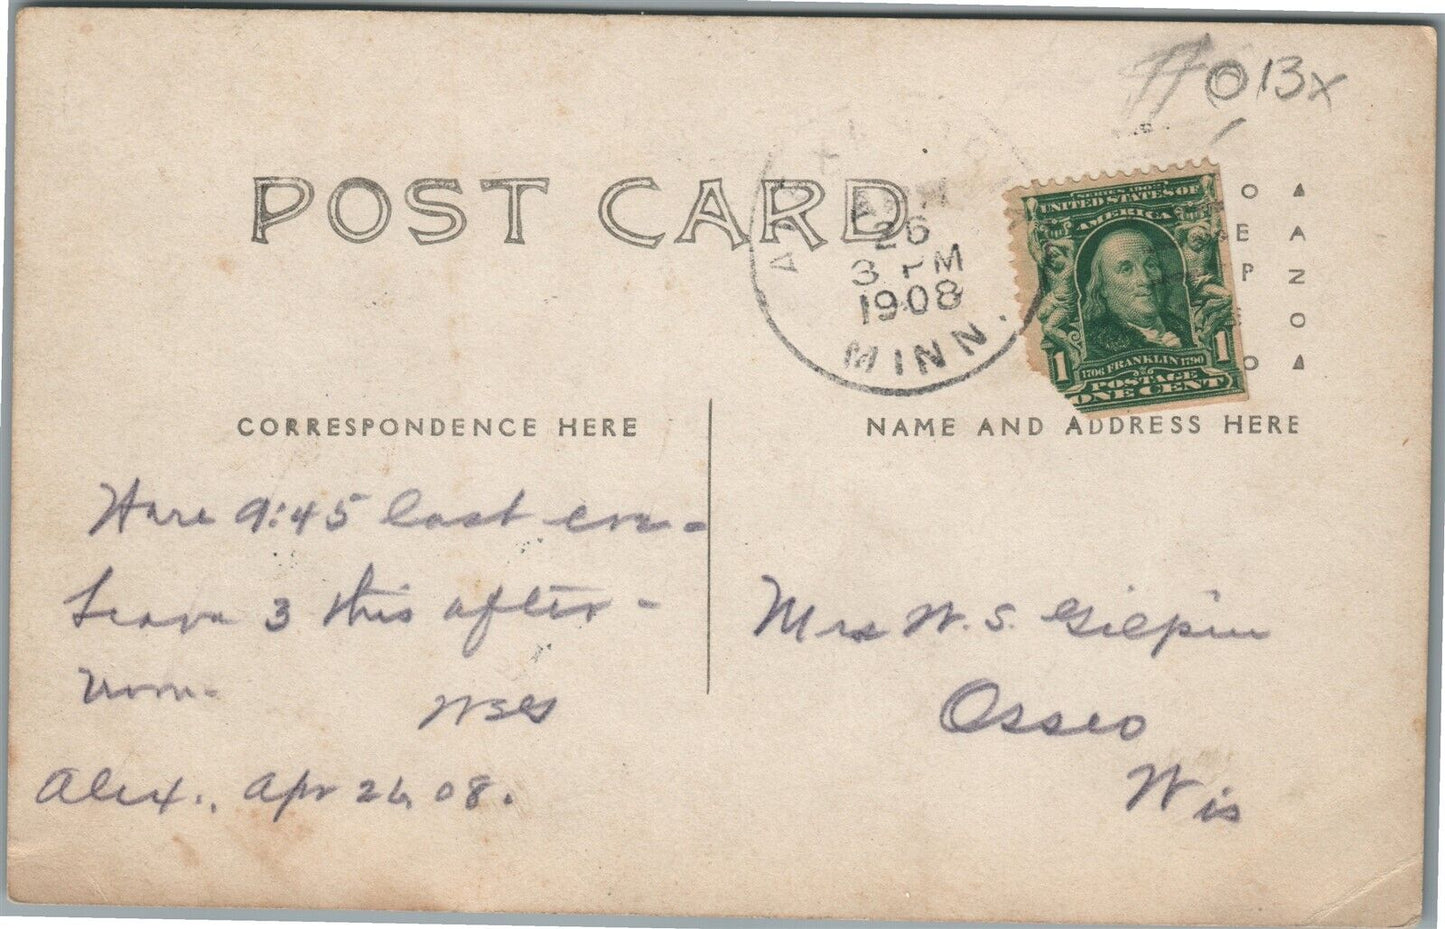 013x
POST CARD
ALEXAN
APR
26
3 PM
1908
MINN.
SERIES 1902
UNITED STATES OF
AMERICA
1 1706 FRANKLIN 1790 1
POSTAGE
ONE CENT
CORRESPONDENCE HERE
NAME AND ADDRESS HERE
Here 9:45 last eve-
Leave 3 this after-
noon-
WSG
Alex., Apr 26, 08.
Mrs W. S. Gilpin
Osseo
Wis